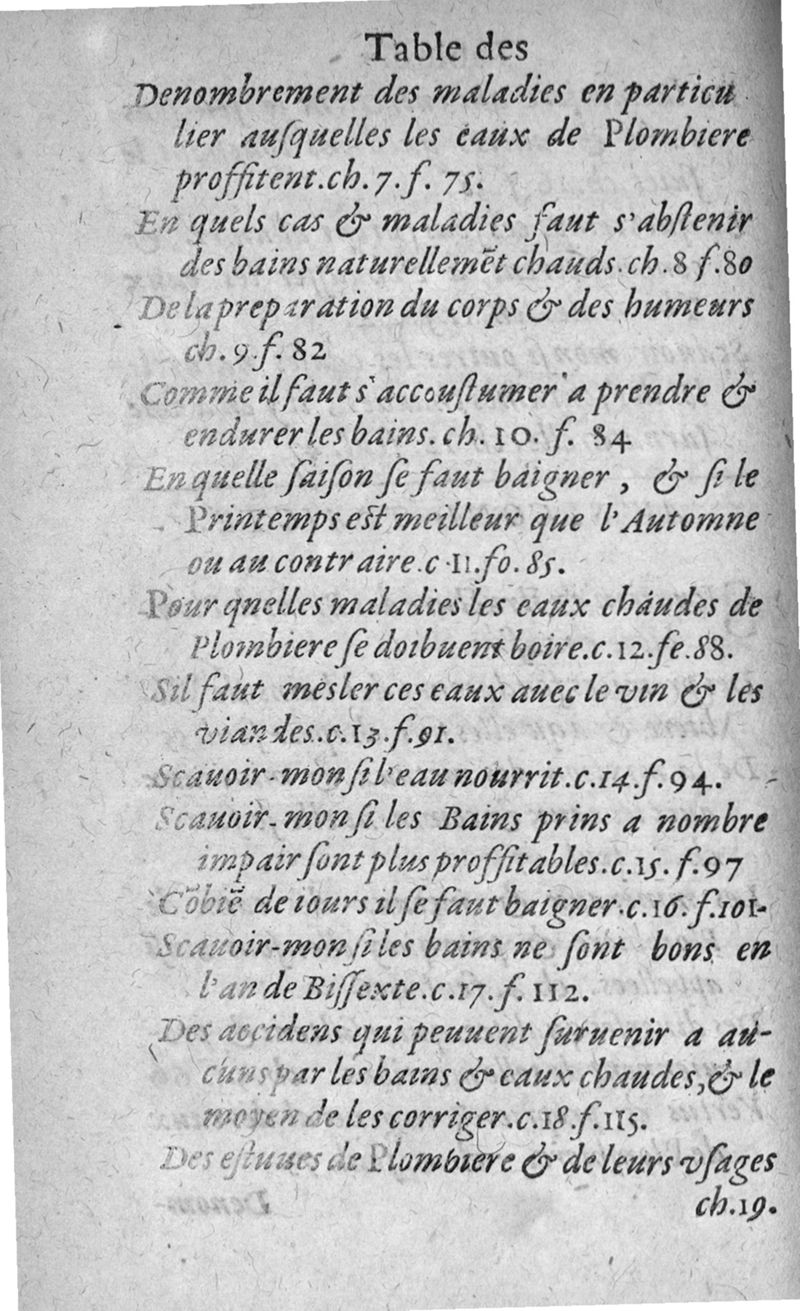 Table des
Denombrement des maladies en particu
lier auſquelles les eaux de Plombiere
proffitent.ch.7.f. 75.
En quels cas & maladies faut s'abſtenir
des bains naturellemẽt chauds.ch.8 f.80
De la preparation du corps & des humeurs
ch.9.f. 82
Comme il faut s'accouſtumer a prendre &
endurer les bains. ch. 10. f. 84
En quelle ſaiſon ſe faut baigner , & ſi le
Printemps eſt meilleur que l'Automne
ou au contraire.c.11.fo.85.
Pour qnelles maladies les eaux chaudes de
Plombiere ſe doibuent boire.c.12.fe.88.
Sil faut mesler ces eaux auec le vin & les
viandes.c.13.f.91.
Scauoir-mon ſi l'eau nourrit.c.14.f.94.
Scauoir-mon ſi les Bains prins a nombre
impair ſont plus proffitables.c.15.f.97
Cõbiẽ de iours il ſe faut baigner.c.16.f.101.
Scauoir-mon ſi les bains ne ſont bons en
l'an de Biſſexte.c.17.f.112.
Des accidens qui peuuent ſuruenir a au-
cuns par les bains & eaux chaudes,& le
moyen de les corriger.c.18.f.115.
Des eſtuues de Plombiere & de leurs vſages
ch.19.